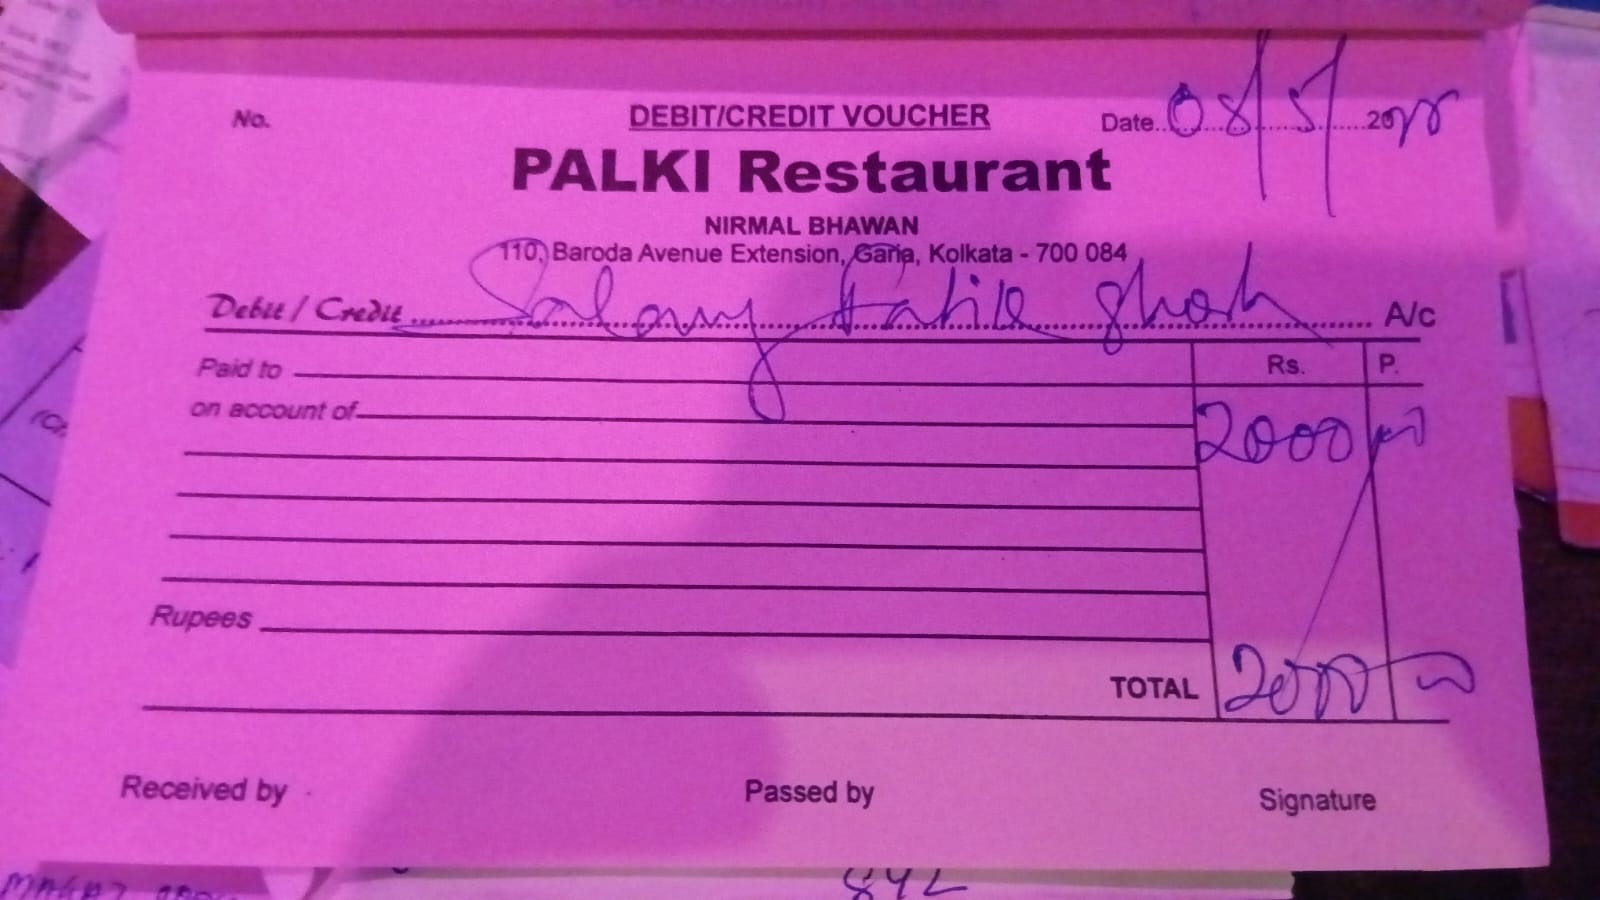 No.
DEBIT/CREDIT VOUCHER
Date 08/5/2022
PALKI Restaurant
NIRMAL BHAWAN
110, Baroda Avenue Extension, Garia, Kolkata - 700 084
Debit / Credit Salary Fatik Ghosh A/c
Paid to
Rs. P.
on account of
2000
Rupees
TOTAL 2000
Received by Passed by Signature
842